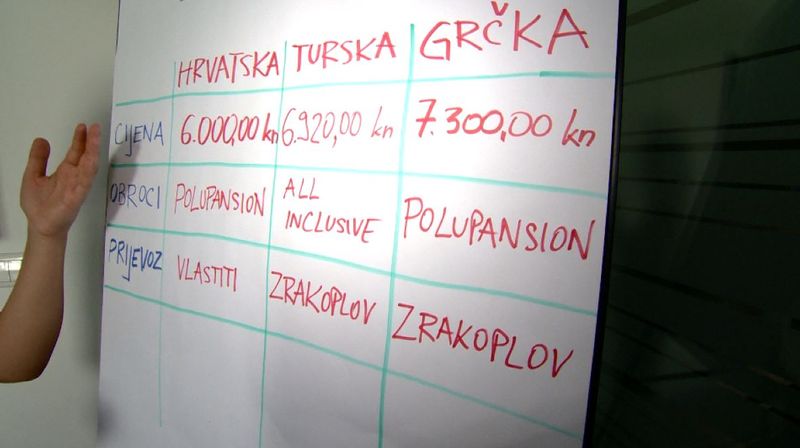 HRVATSKA TURSKA GRČKA
CIJENA 6.000,00 kn 6.920,00 kn 7.300,00 kn
OBROCI POLUPANSION ALL INCLUSIVE POLUPANSION
PRIJEVOZ VLASTITI ZRAKOPLOV ZRAKOPLOV